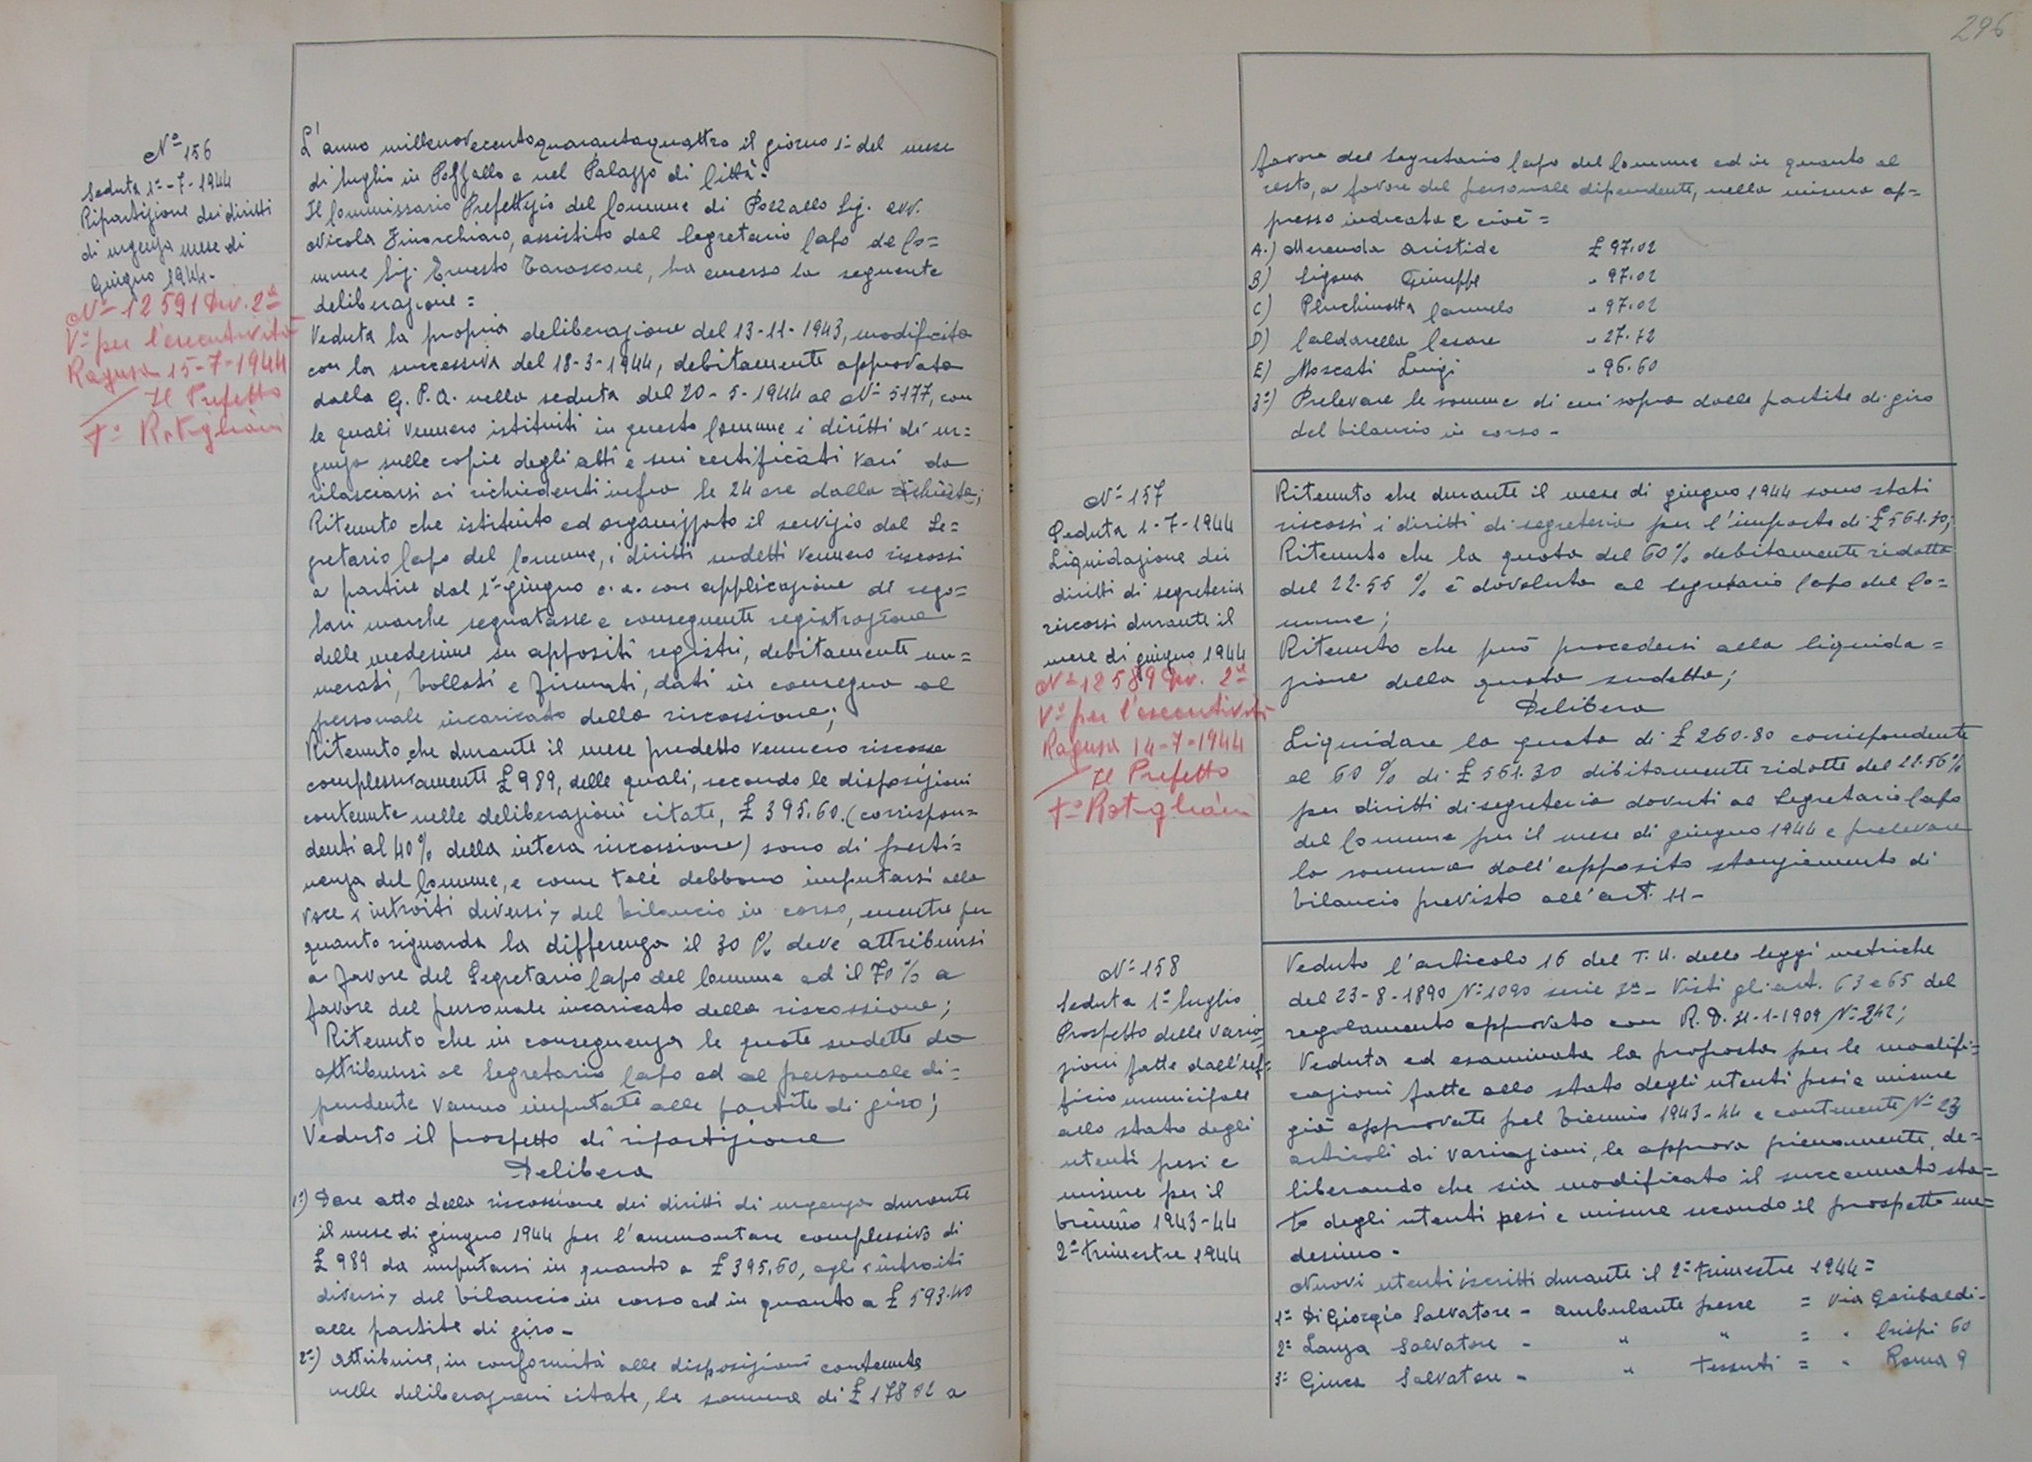 Nº 156
Seduta 1º-7-1944
Ripartizione dei diritti
di urgenza mese di
Giugno 1944-
Nº 12591 Div. 2ª
Vº per l'esecutività
Ragusa 15-7-1944
Il Prefetto
Fº Rotigliani
L'anno millenovecentoquarantaquattro il giorno 1º del mese
di luglio in Pozzallo e nel Palazzo di Città.
Il Commissario Prefettizio del Comune di Pozzallo Sig. avv.
Nicola Finocchiaro, assistito dal Segretario Capo del Co=
mune Sig. Ernesto Tarascone, ha emesso la seguente
deliberazione:
Veduta la propria deliberazione del 13-11-1943, modificata
con la successiva del 18-3-1944, debitamente approvata
dalla G.P.A. nella seduta del 20-5-1944 al Nº 5177, con
le quali vennero istituiti in questo Comune i diritti di ur=
genza sulle copie degli atti e sui certificati vari da
rilasciarsi ai richiedenti infra le 24 ore dalla richiesta;
Ritenuto che istituito ed organizzato il servizio dal Se=
gretario Capo del Comune, i diritti sudetti vennero riscossi
a partire dal 1º giugno c.a. con applicazione di rego=
lari marche segnatasse e conseguente registrazione
delle medesime su appositi registri, debitamente nu=
merati, bollati e firmati, dati in consegna al
personale incaricato della riscossione;
Ritenuto che durante il mese predetto vennero riscosse
complessivamente £ 989, delle quali, secondo le disposizioni
contenute nelle deliberazioni citate, £ 395.60. (corrispon=
denti al 40% della intera riscossione) sono di perti=
nenza del Comune, e come tali debbono imputarsi alla
voce "introiti diversi" del bilancio in corso, mentre per
quanto riguarda la differenza il 30% deve attribuirsi
a favore del Segretario Capo del Comune ed il 70% a
favore del personale incaricato della riscossione;
Ritenuto che in conseguenza le quote sudette da
attribuirsi al Segretario Capo ed al personale di=
pendente vanno imputate alle partite di giro;
Veduto il prospetto di ripartizione
Delibera
1º) Dare atto della riscossione dei diritti di urgenza durante
il mese di giugno 1944 per l'ammontare complessivo di
£ 989 da imputarsi in quanto a £ 395.60, agli "introiti
diversi" del bilancio in corso ed in quanto a £ 593.40
alle partite di giro-
2º) Attribuire, in conformità alle disposizioni contenute
nelle deliberazioni citate, la somma di £ 178.02 a
296
favore del Segretario Capo del Comune ed in quanto al
resto, a favore del personale dipendente, nella misura ap=
presso indicata e cioè=
A.) Merenda Aristide £ 97.02
B) Sigona Giuseppe " 97.02
C) Pluchinotta Carmelo " 97.02
D) Caldarella Cesare " 27.72
E) Moscati Luigi " 96.60
3º) Prelevare le somme di cui sopra dalle partite di giro
del bilancio in corso-
Nº 157
Seduta 1-7-1944
Liquidazione dei
diritti di segreteria
riscossi durante il
mese di giugno 1944
Nº 12589 Div. 2ª
Vº per l'esecutività
Ragusa 14-7-1944
Il Prefetto
Fº Rotigliani
Ritenuto che durante il mese di giugno 1944 sono stati
riscossi i diritti di segreteria per l'importo di £ 561.30;
Ritenuto che la quota del 60% debitamente ridotta
del 22.55 % è dovoluta al segretario Capo del Co=
mune;
Ritenuto che può procedersi alla liquida=
zione della quota sudetta;
Delibera
Liquidare la quota di £ 260.80 corrispondente
al 60 % di £ 561.30 dibitamente ridotte del 22.56%
per diritti di segreteria dovuti al Segretario Capo
del Comune per il mese di giugno 1944 e prelevare
la somma dall'apposito stanziamento di
bilancio previsto all'art. 11-
Nº 158
Seduta 1º luglio
Prospetto delle varia
zioni fatte dall'uf=
ficio municipale
allo stato degli
utenti pesi e
misure per il
biennio 1943-44
2º trimestre 1944
Veduto l'articolo 16 del T.U. delle leggi metriche
del 23-8-1890 Nº 1090 serie 3ª- Visti gli art. 63 e 65 del
regolamento approvato con R.D. 31-1-1909 Nº 242;
Veduta ed esaminata la proposta per le modifi=
cazioni fatte allo stato degli utenti pesi e misure
già approvate pel biennio 1943-44 e contenente Nº 23
articoli di variazioni, le approva pienamente, de=
liberando che sia modificato il succennato sta=
to degli utenti pesi e misure secondo il prospetto me=
desimo-
Nuovi utenti iscritti durante il 2º trimestre 1944=
1º Di Giorgio Salvatore - ambulante pesce = Via Garibaldi-
2º Lanza Salvatore - " " = " Crispi 60
3º Giuca Salvatore - " tessuti = " Roma 9